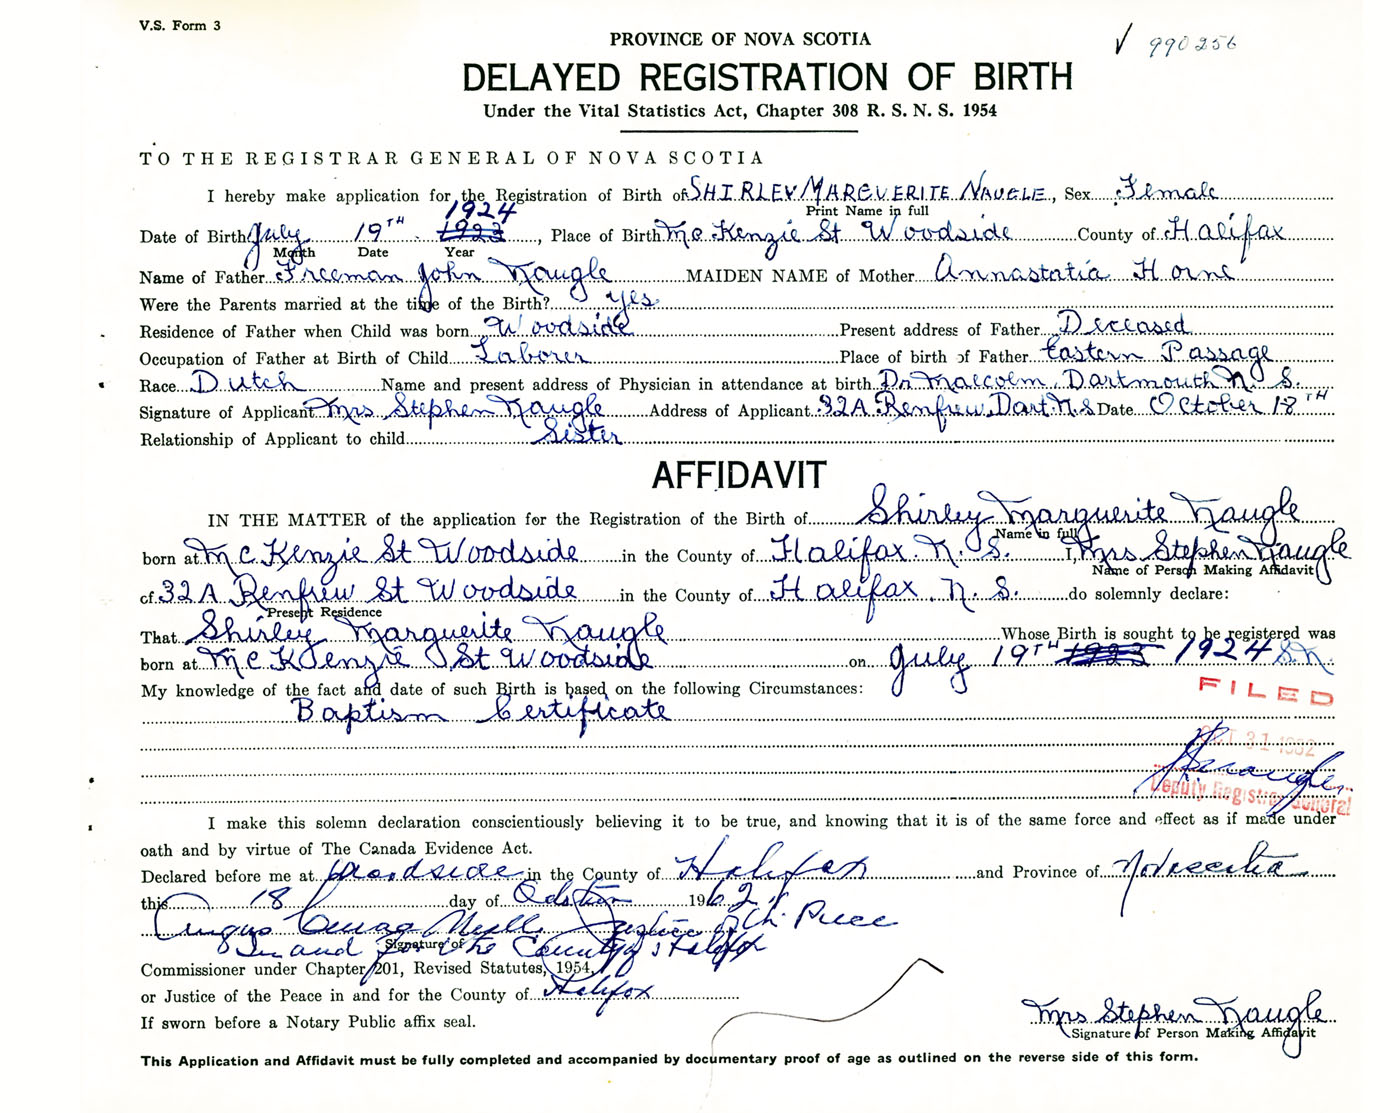 V.S. Form 3
PROVINCE OF NOVA SCOTIA
✓ 990256
DELAYED REGISTRATION OF BIRTH
Under the Vital Statistics Act, Chapter 308 R. S. N. S. 1954
TO THE REGISTRAR GENERAL OF NOVA SCOTIA
I hereby make application for the Registration of Birth of SHIRLEY MARGUERITE NAUGLE, Sex Female
1924 Print Name in full
Date of Birth July 19TH 1923, Place of Birth Mc Kenzie St Woodside County of Halifax
Month Date Year
Name of Father Freeman John Naugle MAIDEN NAME of Mother Annastatia Horne
Were the Parents married at the time of the Birth? yes
Residence of Father when Child was born Woodside Present address of Father Deceased
Occupation of Father at Birth of Child Laborer Place of birth of Father Eastern Passage
Race Dutch Name and present address of Physician in attendance at birth Dr Malcolm, Dartmouth N. S.
Signature of Applicant Mrs Stephen Naugle Address of Applicant 32A Renfrew, Dart. N.S Date October 18TH
Relationship of Applicant to child Sister
AFFIDAVIT
IN THE MATTER of the application for the Registration of the Birth of Shirley Marguerite Naugle
Name in full
born at Mc Kenzie St Woodside in the County of Halifax. N. S. I, Mrs Stephen Naugle
Name of Person Making Affidavit
of 32 A Renfrew St Woodside in the County of Halifax. N. S. do solemnly declare:
Present Residence
That Shirley Marguerite Naugle Whose Birth is sought to be registered was
born at Mc Kenzie St Woodside on July 19TH 1923 1924 S.N.
My knowledge of the fact and date of such Birth is based on the following Circumstances:
FILED
Baptism Certificate
OCT 31 1962
Deputy Registrar General
I make this solemn declaration conscientiously believing it to be true, and knowing that it is of the same force and effect as if made under
oath and by virtue of The Canada Evidence Act.
Declared before me at Woodside in the County of Halifax and Province of Novascotia
this 18 day of October 1962
Angus Justice of the Peace
In and for the County of Halifax
Signature of
Commissioner under Chapter 201, Revised Statutes, 1954,
or Justice of the Peace in and for the County of Halifax
If sworn before a Notary Public affix seal.
Mrs Stephen Naugle
Signature of Person Making Affidavit
This Application and Affidavit must be fully completed and accompanied by documentary proof of age as outlined on the reverse side of this form.